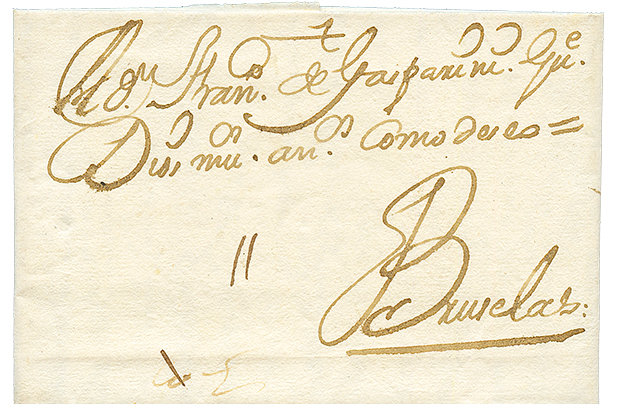 Al S.r Fran.co de Gasparini. Gu.e
Dios mu.s an.s como deseo =
Bruselas: